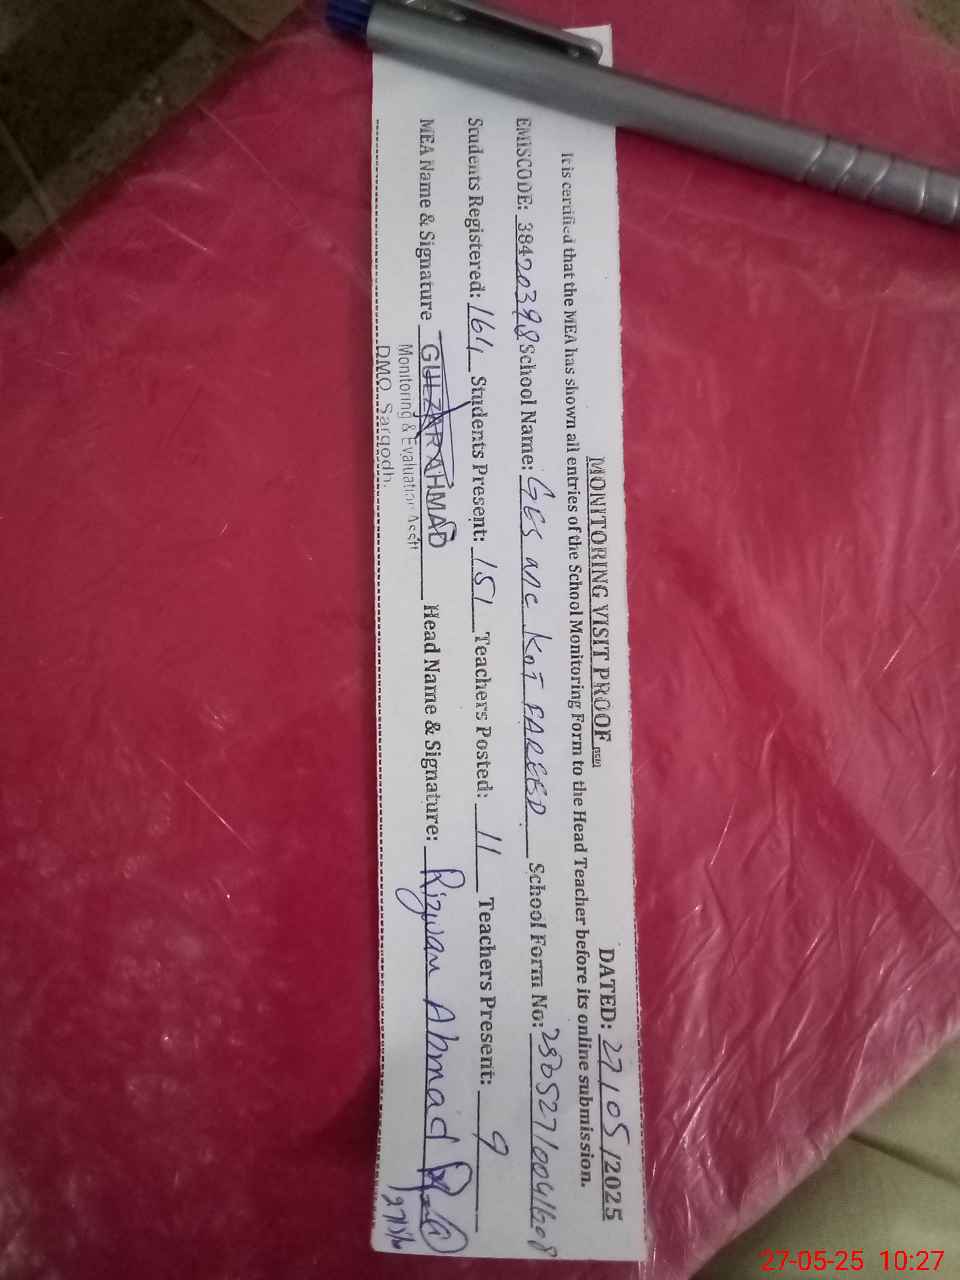 MONITORING VISIT PROOF DATED: 27/05/2025
It is certified that the MEA has shown all entries of the School Monitoring Form to the Head Teacher before its online submission.
EMISCODE: 38420398 School Name: GES M/C KOT FAREED School Form No:
Students Registered: 164 Students Present: 151 Teachers Posted: 11 Teachers Present: 9
MEA Name & Signature GULZAR AHMAD Head Name & Signature: Rizwan Ahmad
Monitoring & Evaluation Asstt
DMO, Sargodh.
27-05-25 10:27